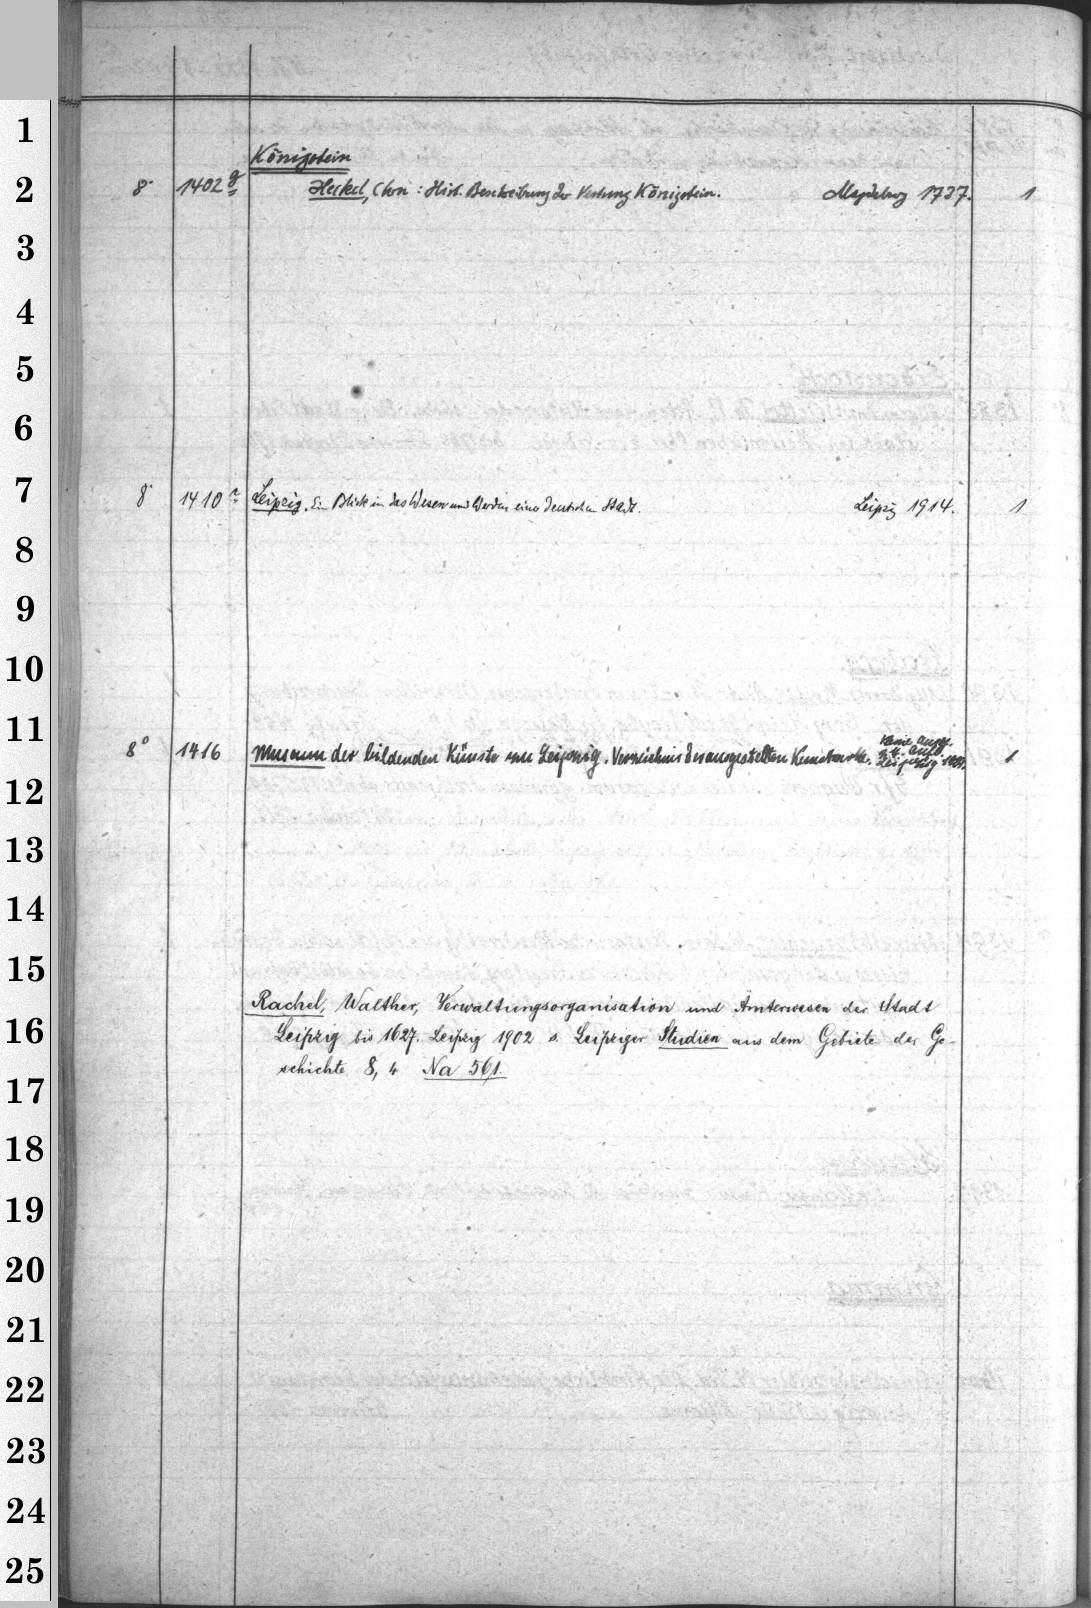 1
Königstein
2
8° 1402 g Heckel, Chrn: Hist. Beschreibung der Vestung Königstein. Magdeburg 1737. 1
3
4
5
6
7
8° 1410 Leipzig. Ein Blick in das Wesen und Werden einer deutschen Stadt. Leipzig 1914. 1
8
9
10
11
8° 1416 Museum der bildenden Künste zu Leipzig. Verzeichnis der ausgestellten Kunstwerke. Leipzig 1
12
13
14
15
Rachel, Walther, Verwaltungsorganisation und Ämterwesen der Stadt
16
Leipzig bis 1627. Leipzig 1902 s. Leipziger Studien aus dem Gebiete der Ge-
schichte 8, 4 Na 561.
17
18
19
20
21
22
23
24
25